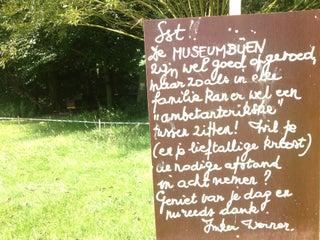 Sst!
De MUSEUMBIJEN
zijn wel goed opgevoed,
maar zoals in elke
familie kan er wel een
"ambetanterikske"
tussen zitten! Wil je
(en je lieftallige kroost)
de nodige afstand
in acht nemen?
Geniet van je dag en
nu reeds dank.
Imker Werner